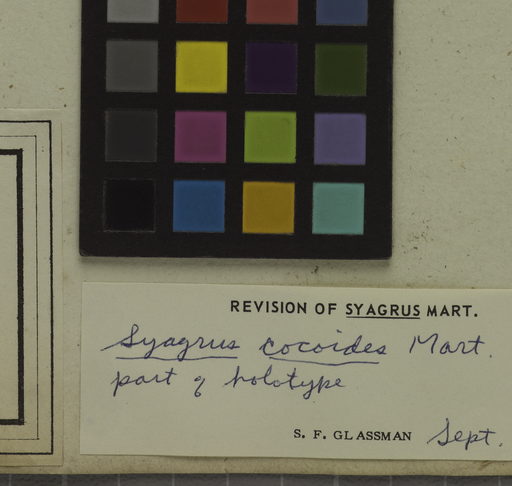 REVISION OF SYAGRUS MART.
Syagrus cocoides Mart.
part of holotype
S. F. GLASSMAN Sept.